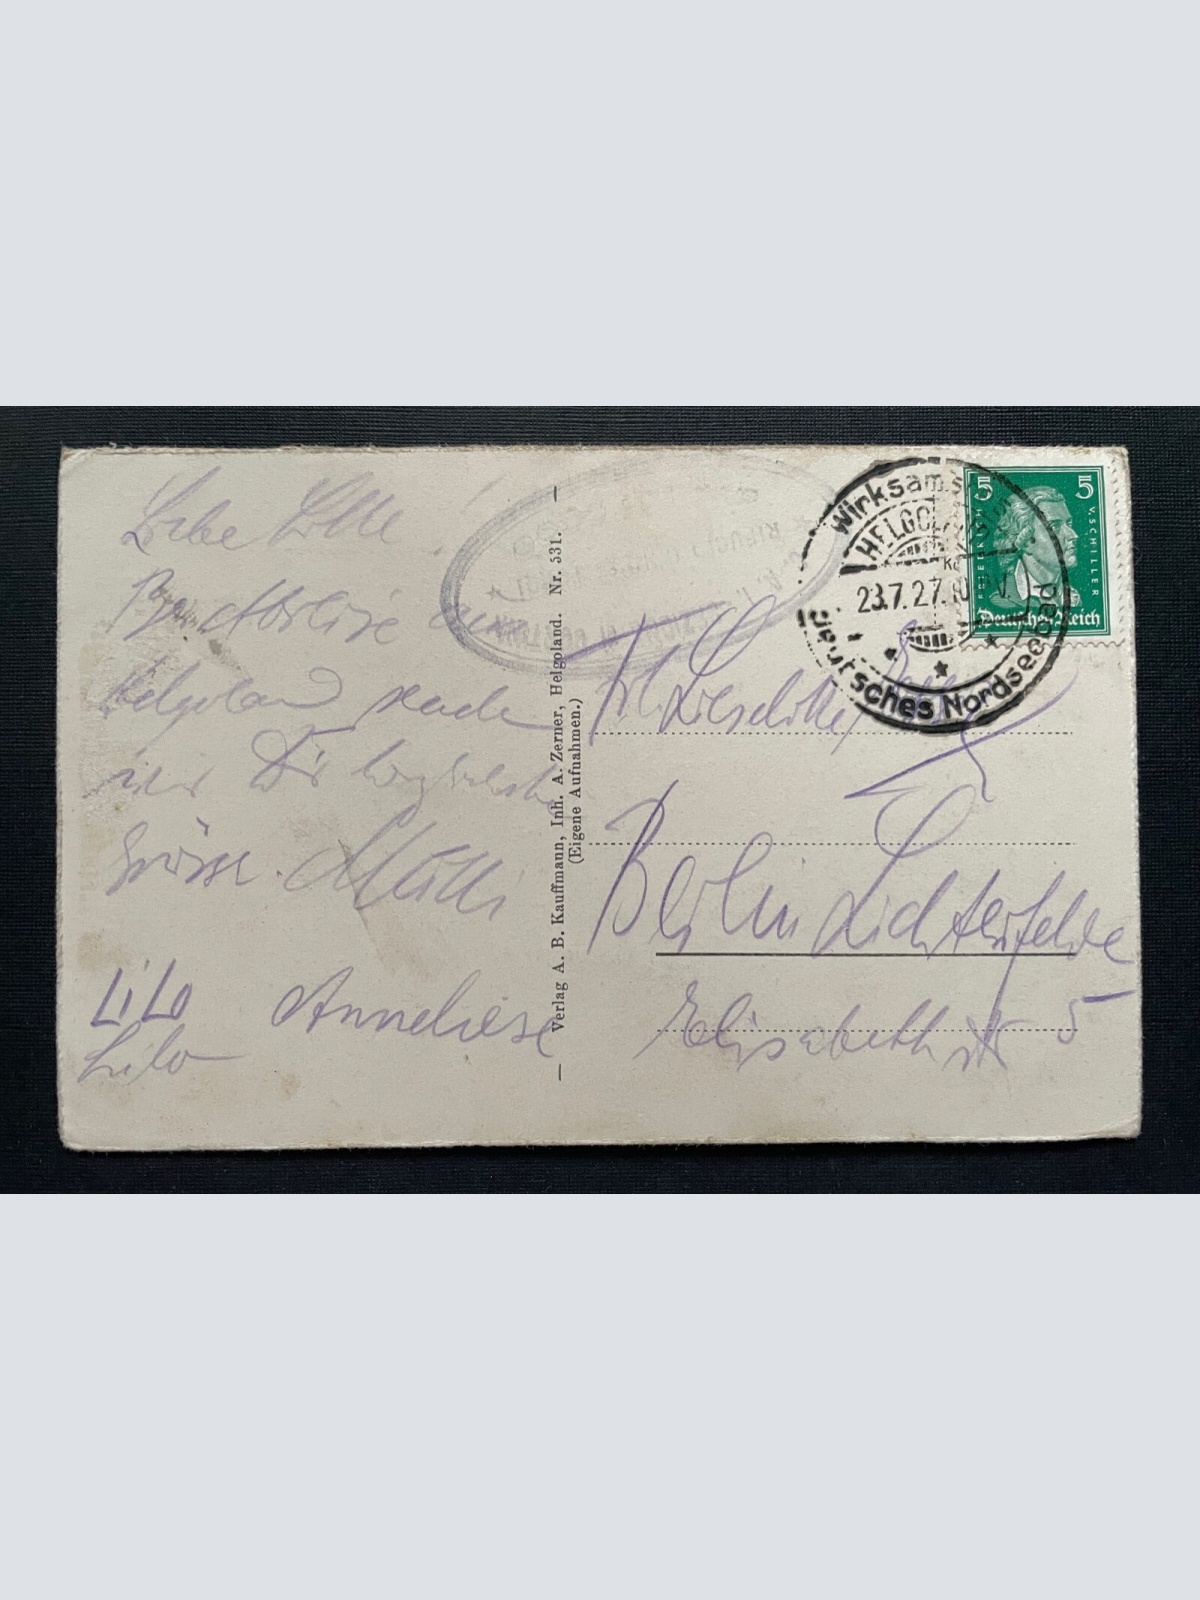 Liebe Lotte
Helgoland sende
Dir herzlichste
Grüsse. Mutti
LiLo
Lilo
Anneliese
Verlag A. B. Kauffmann, Inh. A. Zerner, Helgoland. Nr. 531.
(Eigene Aufnahmen.)
Wirksamstes
HELGOLAND
23.7.27.
deutsches Nordseebad
5 5
FRIEDRICH V. SCHILLER
Deutsches Reich
Frl. Lieselotte
Berlin Lichterfelde
Elisabethstr 5